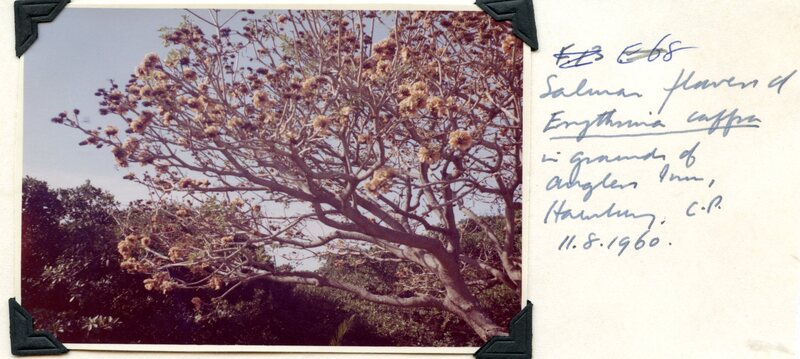 E68
Salmon flowered
Erythrina caffra
in grounds of
Anglers Inn,
Hamburg, C.P.
11.8.1960.